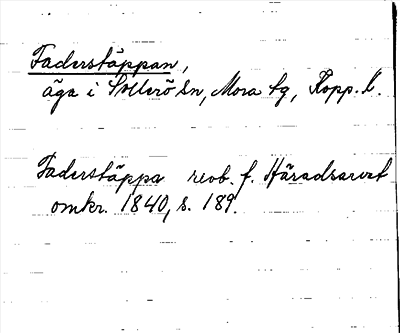 Faderstäppan,
äga i Sollerö sn, Mora tg, Kopp. l.
Faderstäppa renb. f. Häradsarvet
omkr. 1840, s. 189.